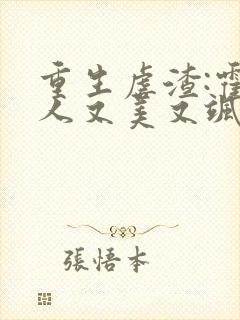 重生虐渣:霍
人又美又飒
張悟本